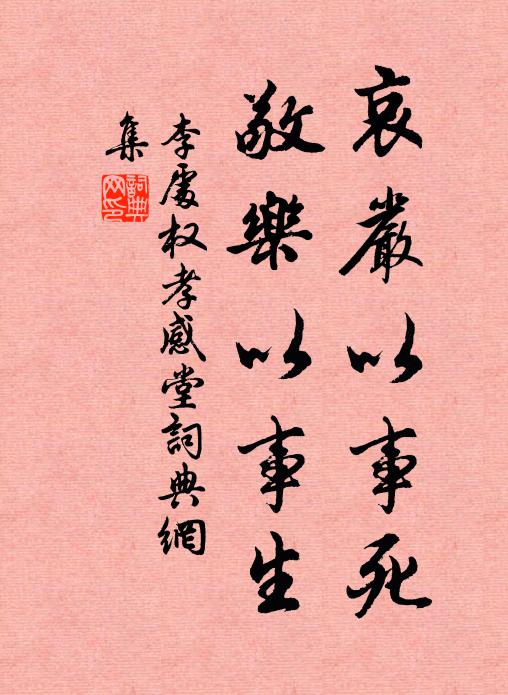 哀嚴以事死
敬樂以事生
李處权孝感堂詞典網
集
詞典
网印